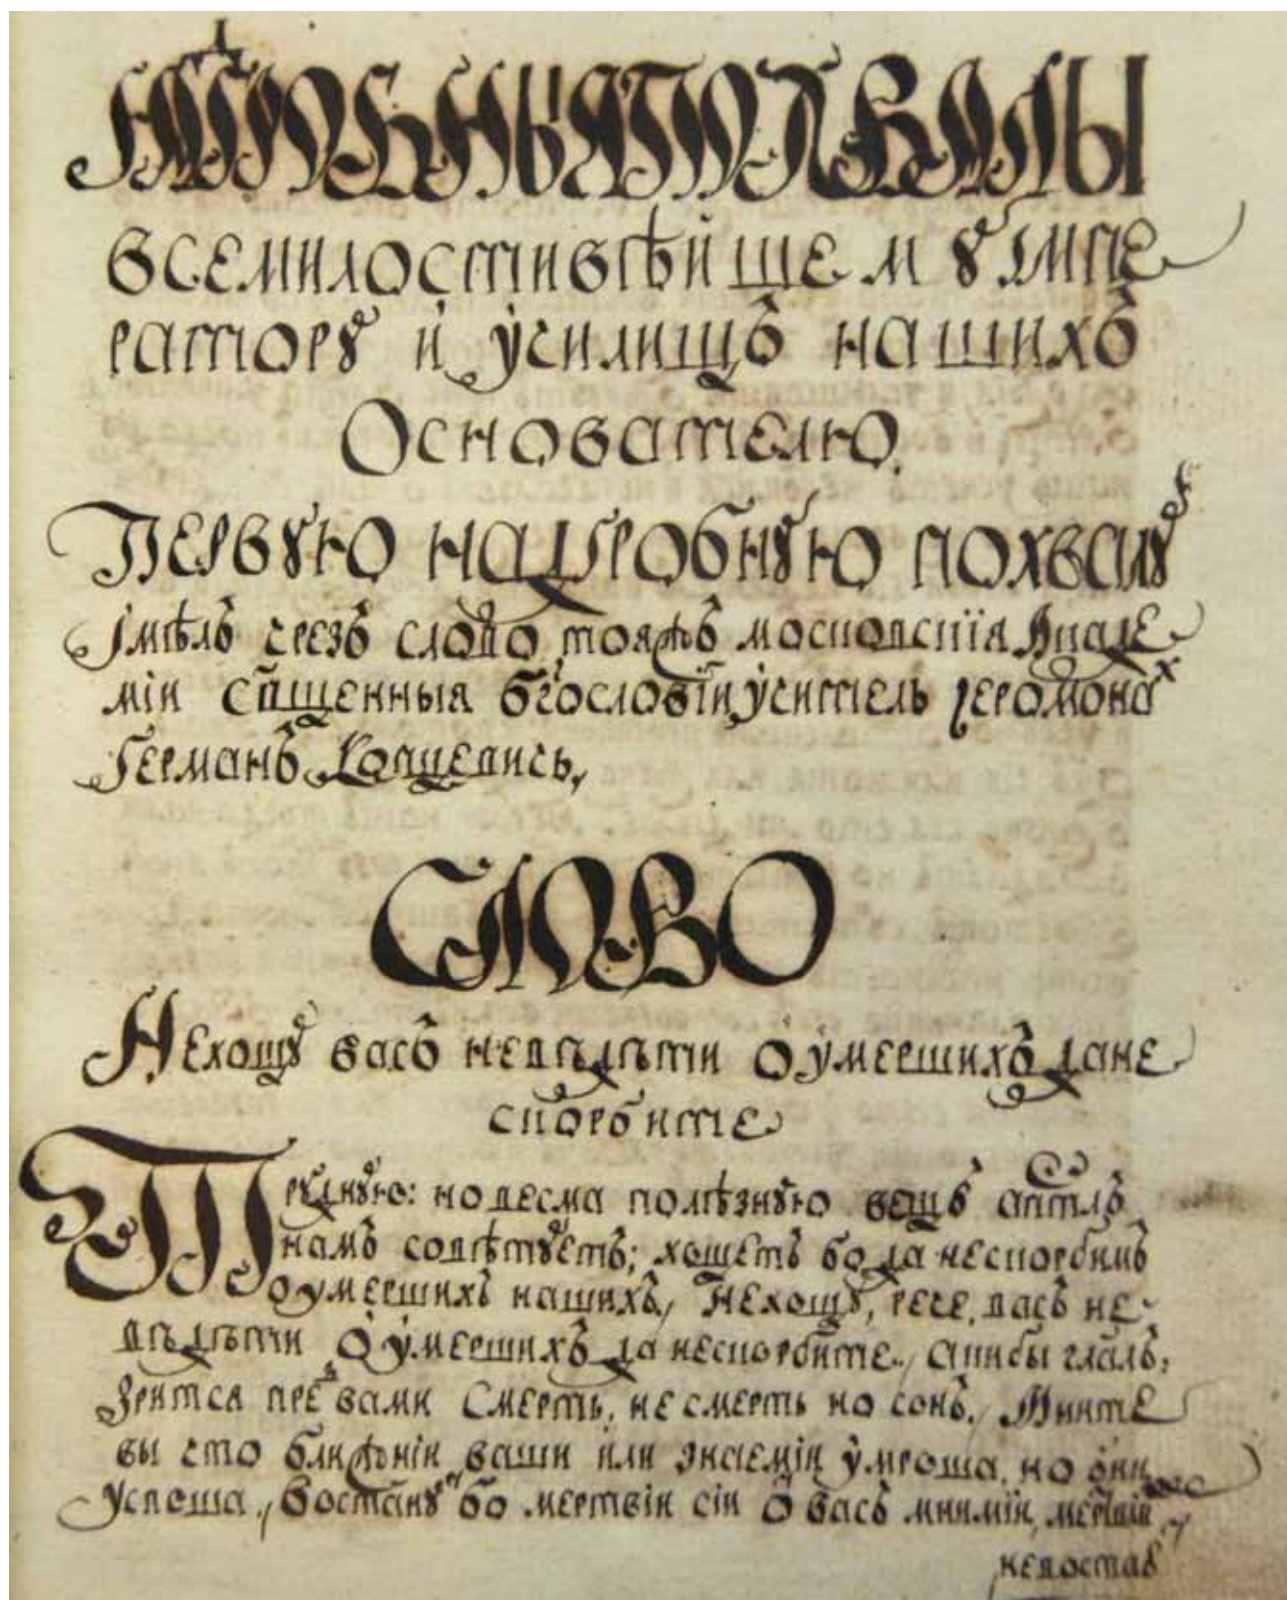 НАДГРОБНЫЯ ПОХВАЛЫ
всемилостивѣйшему Імпе
ратору и ѹчилищъ нашихъ
Основателю.
Первꙋю надгробнꙋю похвалꙋ
Імѣлъ чрезъ слово тояжъ московскїя Акаде
міи сщ҃енныя бг҃ословїи ѹчитель іеромонаⷯ
Германъ Копцевичь,
СЛОВО
Нехощꙋ васъ невѣдѣти о ѹмершихъ да не
скорбите
Трꙋднꙋю: но весма полѣзнꙋю вещъ апⷭ҇тлъ
намъ совѣтꙋетъ; хощетъ бо да нескорбимъ
о ѹмершихъ нашихъ, Нехощꙋ, рече, васъ не-
вѣдѣти о ѹмершихъ да нескорбите., аки бы глалъ:
Зрится преⷣ вами Смерть, не смерть но сонъ, Мните
вы что ближніи ваши или знаеміи ѹмроша, но они
Успоша, Востанꙋⷮ бо мертвіи сіи ѿ васъ мнимїи, мертвіи
невостаꙋ